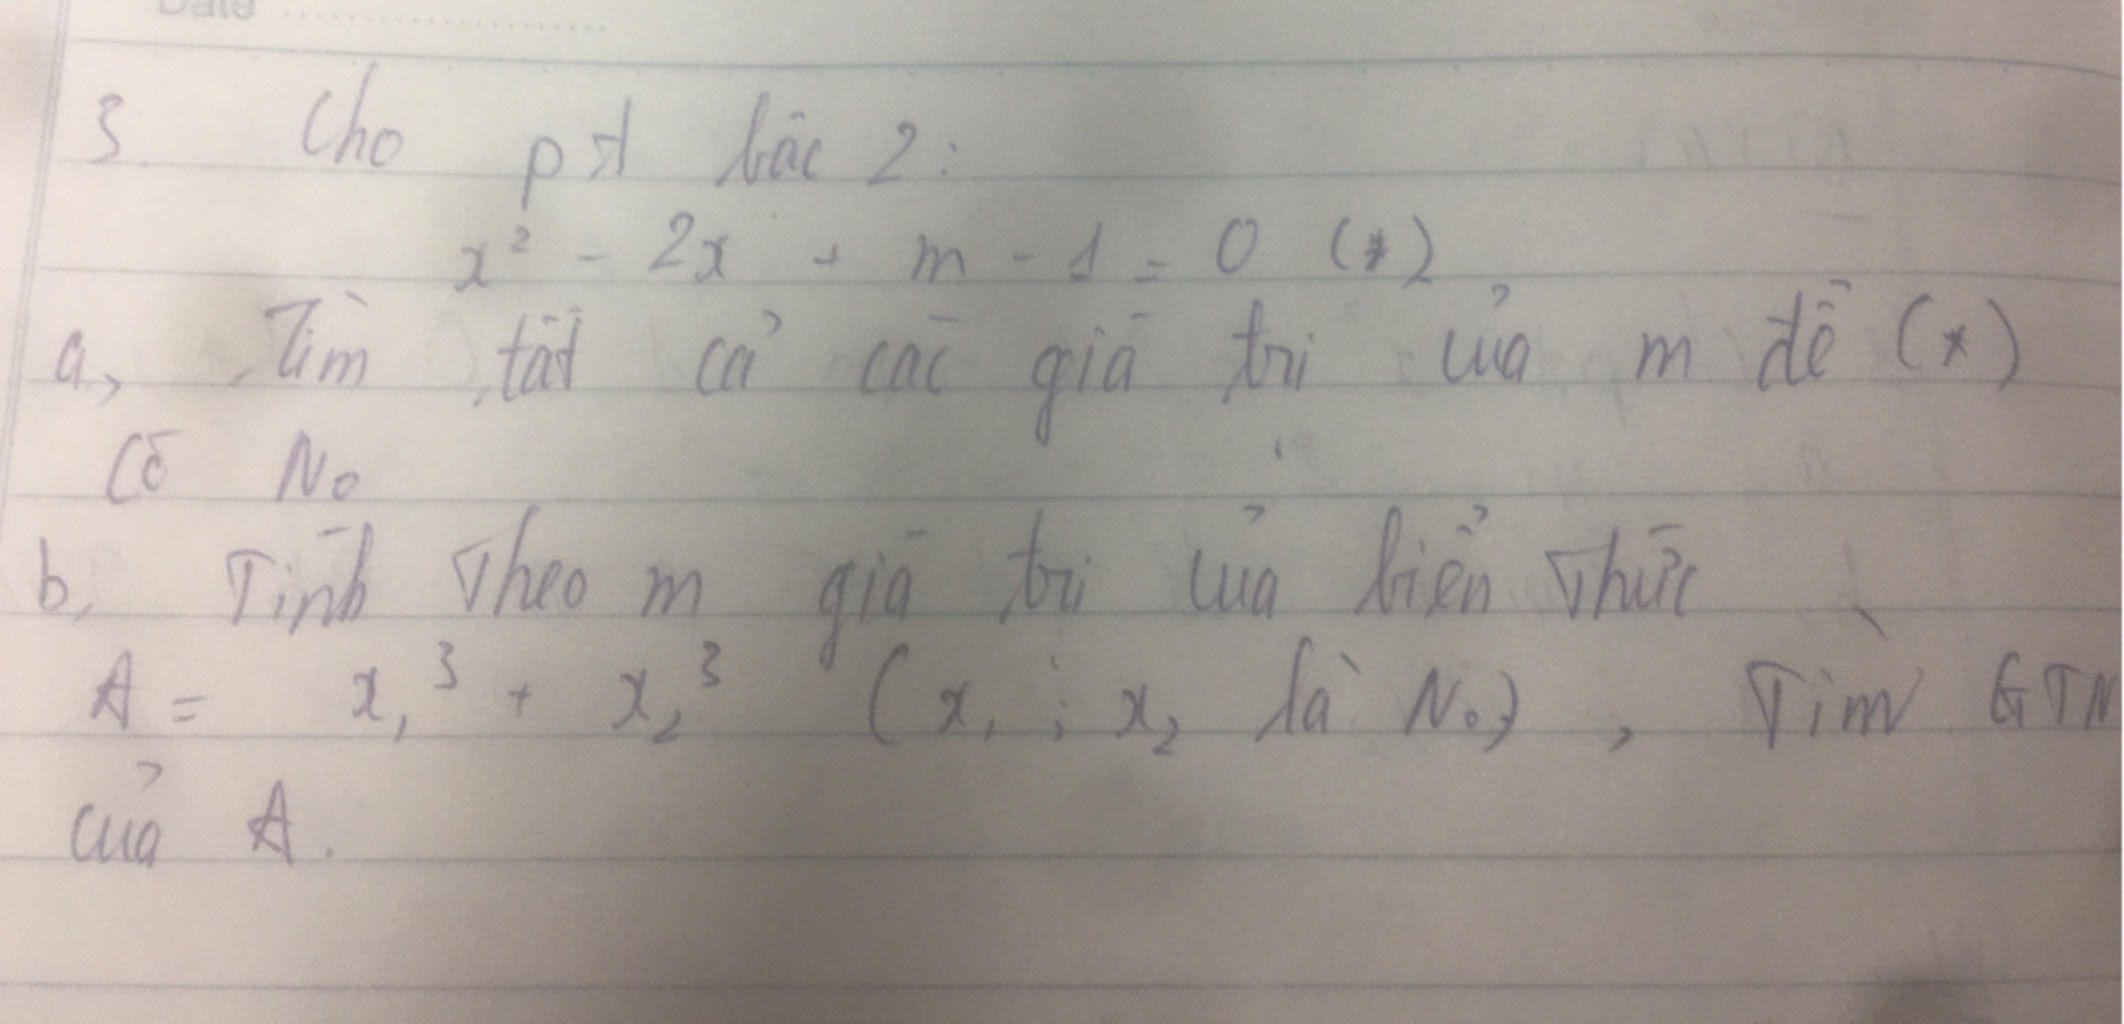 Date
3. Cho pt bậc 2:
x² - 2x + m - 1 = 0 (*)
a, Tìm tất cả các giá trị của m để (*)
Có No
b, Tính theo m giá trị của biển thức
A = x₁³ + x₂³ (x₁ ; x₂ là No) , Tìm GTN
của A.